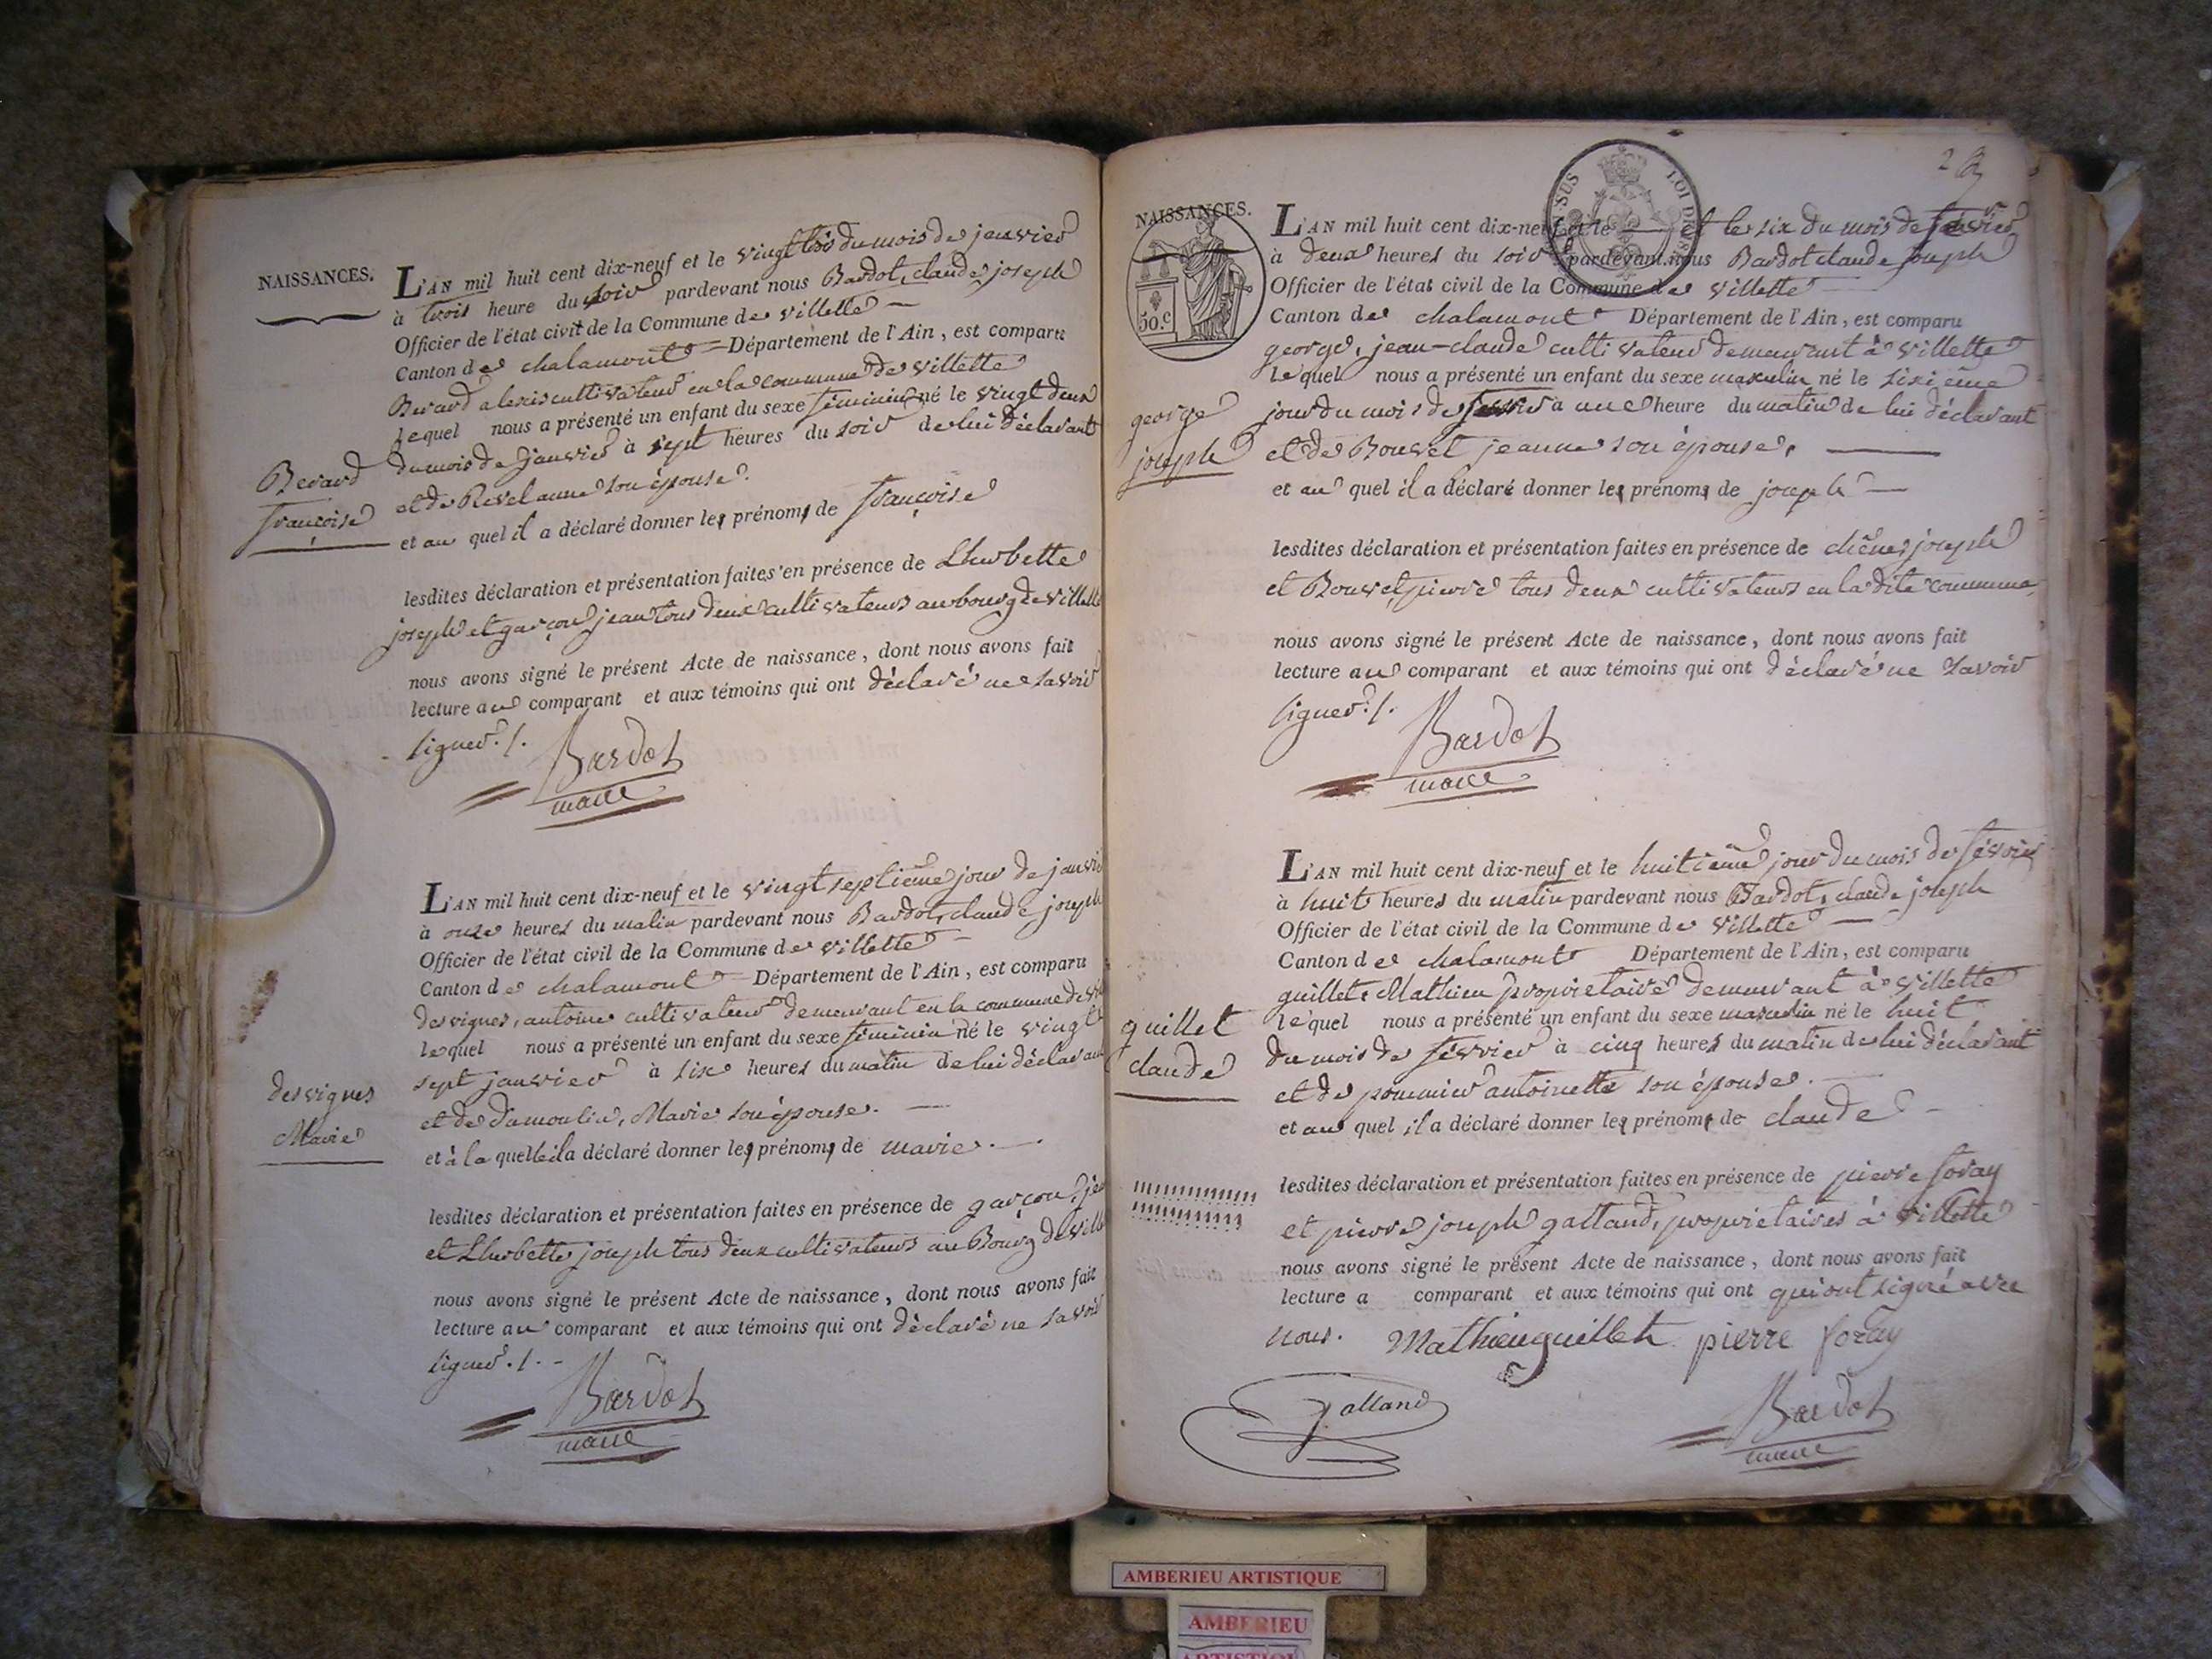 NAISSANCES.
L'AN mil huit cent dix-neuf et le vingt trois du mois de janvier
à trois heure du soir pardevant nous Bardot, claude joseph
Officier de l'état civil de la Commune de villette
Canton de chalamont Département de l'Ain, est comparu
Berard alexis cultivateur en la commune de villette
lequel nous a présenté un enfant du sexe féminin né le vingt deux
du mois de janvier à sept heures du soir de lui déclarant
Berard
françoise
et de Revel anne son épouse.
et au quel il a déclaré donner les prénoms de françoise
lesdites déclaration et présentation faites en présence de Lherbette
joseph et garçon jean tous deux cultivateurs au bourg de villette
nous avons signé le présent Acte de naissance, dont nous avons fait
lecture au comparant et aux témoins qui ont déclaré ne savoir
signer./.
Bardot
maire
L'AN mil huit cent dix-neuf et le vingt septième jour de janvi
à onze heures du matin pardevant nous Bardot, claude joseph
Officier de l'état civil de la Commune de villette
Canton de chalamont Département de l'Ain, est comparu
desvignes, antoine cultivateur demeurant en la commune de
lequel nous a présenté un enfant du sexe féminin né le vingt
sept janvier à six heures du matin de lui déclarant
desvignes
Marie
et de Dumoulin, Marie son épouse.
et à la quelle il a déclaré donner les prénoms de marie.
lesdites déclaration et présentation faites en présence de garçon, je
et Lherbette joseph tous deux cultivateurs au Bourg de vill
nous avons signé le présent Acte de naissance, dont nous avons fait
lecture au comparant et aux témoins qui ont déclaré ne savoir
signer./.
Bardot
maire
2
NAISSANCES.
50.c
SUS LOI DE 18
L'AN mil huit cent dix-neuf et le six du mois de février
à deux heures du soir pardevant nous Bardot claude joseph
Officier de l'état civil de la Commune de villette
Canton de chalamont Département de l'Ain, est comparu
george, jean-claude cultivateur demeurant à villette
lequel nous a présenté un enfant du sexe masculin né le sixième
jour du mois de fevrier à une heure du matin de lui déclarant
george
joseph
et de Bouvet jeanne son épouse.
et au quel il a déclaré donner les prénoms de joseph
lesdites déclaration et présentation faites en présence de chêne, joseph
et Bouvet, pierre tous deux cultivateurs en la dite commune,
nous avons signé le présent Acte de naissance, dont nous avons fait
lecture au comparant et aux témoins qui ont déclaré ne savoir
signer./.
Bardot
maire
L'AN mil huit cent dix-neuf et le huitième jour du mois de février
à huit heures du matin pardevant nous Bardot, claude joseph
Officier de l'état civil de la Commune de villette
Canton de chalamont Département de l'Ain, est comparu
guillet, Mathieu propriétaire demeurant à villette
lequel nous a présenté un enfant du sexe masculin né le huit
du mois de février à cinq heures du matin de lui déclarant
guillet
claude
et de pommier antoinette son épouse.
et au quel il a déclaré donner les prénoms de claude
lesdites déclaration et présentation faites en présence de pierre foray
et pierre joseph galland, propriétaires à villette
nous avons signé le présent Acte de naissance, dont nous avons fait
lecture a comparant et aux témoins qui ont qui ont signé avec
nous. Mathieu guillet pierre foray
galland
Bardot
maire
AMBERIEU ARTISTIQUE
AMBERIEU
ARTISTIQU